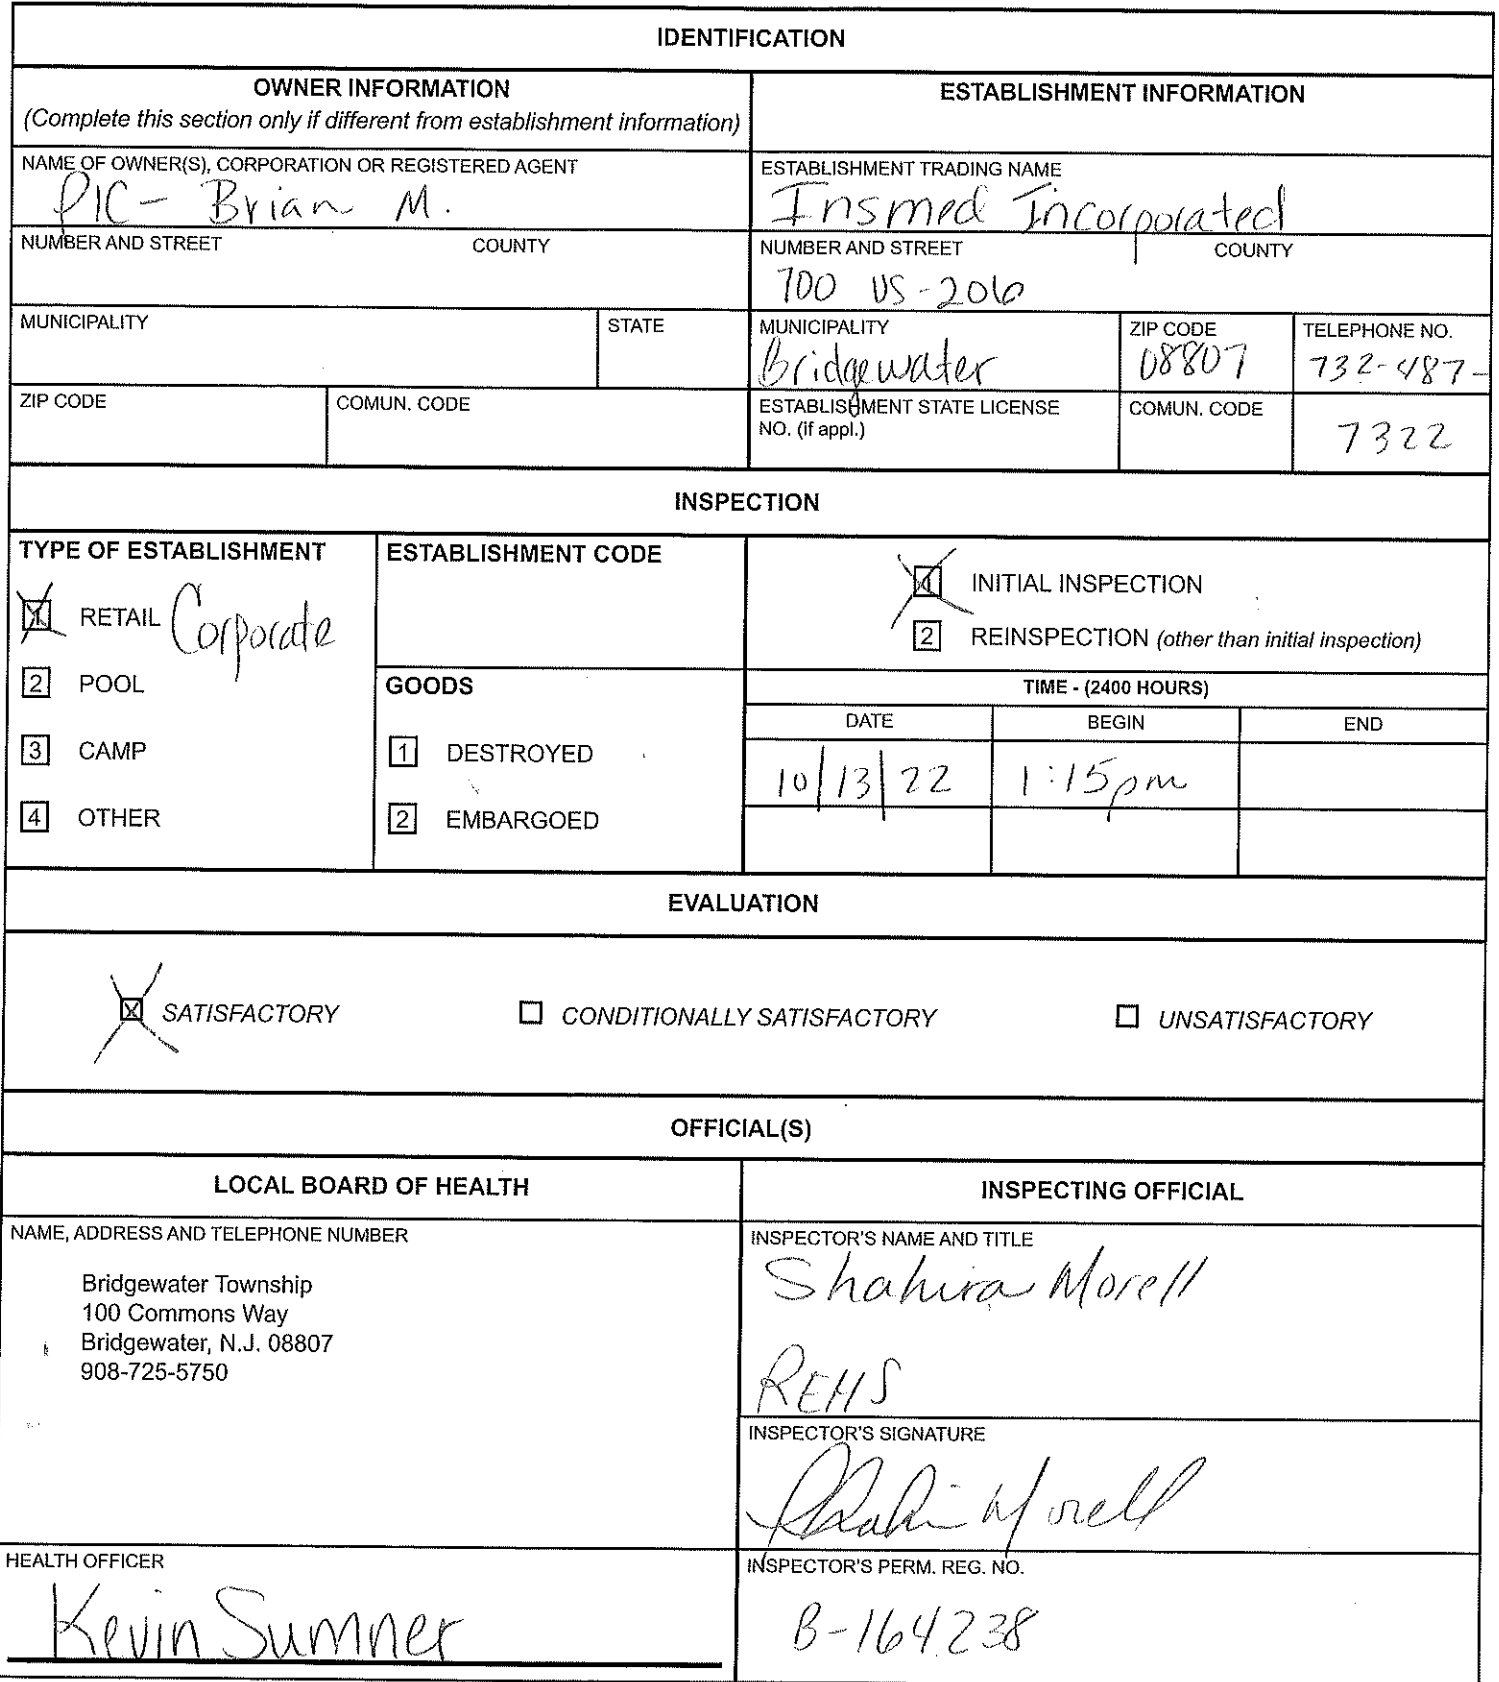 IDENTIFICATION
OWNER INFORMATION
(Complete this section only if different from establishment information)
ESTABLISHMENT INFORMATION
NAME OF OWNER(S), CORPORATION OR REGISTERED AGENT
PIC- Brian M.
ESTABLISHMENT TRADING NAME
Insmed Incorporated
NUMBER AND STREET COUNTY
NUMBER AND STREET COUNTY
700 US-206
MUNICIPALITY
STATE
MUNICIPALITY
Bridgewater
ZIP CODE
08807
TELEPHONE NO.
732-487-
7322
ZIP CODE
COMUN. CODE
ESTABLISHMENT STATE LICENSE
NO. (if appl.)
COMUN. CODE
INSPECTION
TYPE OF ESTABLISHMENT
1 RETAIL Corporate
2 POOL
3 CAMP
4 OTHER
ESTABLISHMENT CODE
GOODS
1 DESTROYED
2 EMBARGOED
1 INITIAL INSPECTION
2 REINSPECTION (other than initial inspection)
TIME - (2400 HOURS)
DATE BEGIN END
10/13/22 1:15pm
EVALUATION
SATISFACTORY CONDITIONALLY SATISFACTORY UNSATISFACTORY
OFFICIAL(S)
LOCAL BOARD OF HEALTH
NAME, ADDRESS AND TELEPHONE NUMBER
Bridgewater Township
100 Commons Way
Bridgewater, N.J. 08807
908-725-5750
HEALTH OFFICER
Kevin Sumner
INSPECTING OFFICIAL
INSPECTOR'S NAME AND TITLE
Shahira Morell
REHS
INSPECTOR'S SIGNATURE
Shahira Morell
INSPECTOR'S PERM. REG. NO.
B-164238